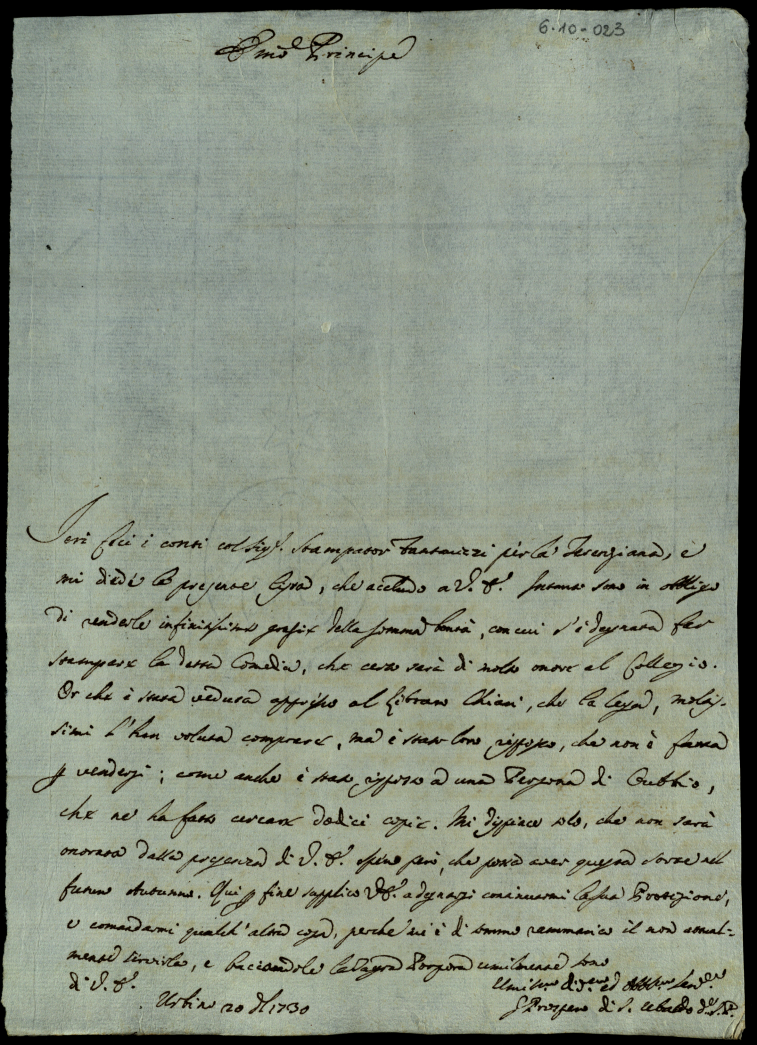 6-10-023
Em̃o Principe
Ieri feci i conti col Sig.r Stampator Fantauzzi per la Terenziana, e
mi diede la presente, che accludo a V. E. Intanto sono in obbligo
di renderle infinissime grazie della somma bontà, con cui s'è degnata far
stampare la detta Comedia, che certo sarà di molto onore al Collegio.
Or che è stata veduta appresso al Libraro Chiari, che la lega, moltis-
simi l'han voluta comprare, ma è stato loro risposto, che non è fatta
p vendersi; come anche è stato risposto ad una Persona di Gubbio,
che ne ha fatto cercare dodici copie. Mi dispiace solo, che non sarà
onorata dalla presenza di V. E. spero però, che possa aver questa sorte nel
futuro Autunno. Qui p fine supplico V. E. a degnarsi continuarmi la sua Protezione,
e comandarmi qualch'altra cosa, perche mi è di sommo rammarico il non attual-
mente servirla, e baciandole la Sagra Porpora umilmente sono
di V. E.
Urbino 20 1730
Umil.mo di.mo ed Obbl.mo Ser.re
Prospero di S. Ubaldo d. S. P.